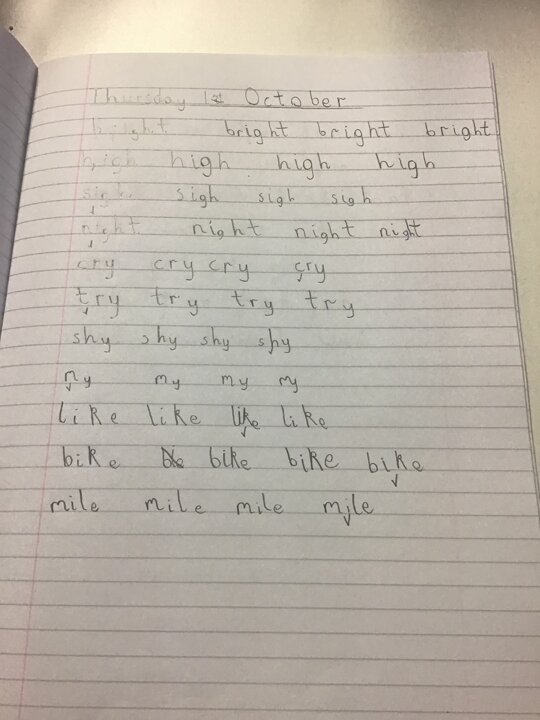 Thursday 1st October
bright bright bright bright
high high high high
sigh sigh sigh sigh
night night night night
cry cry cry cry
try try try try
shy shy shy shy
my my my my
like like like like
bike bike bike bike
mile mile mile mile